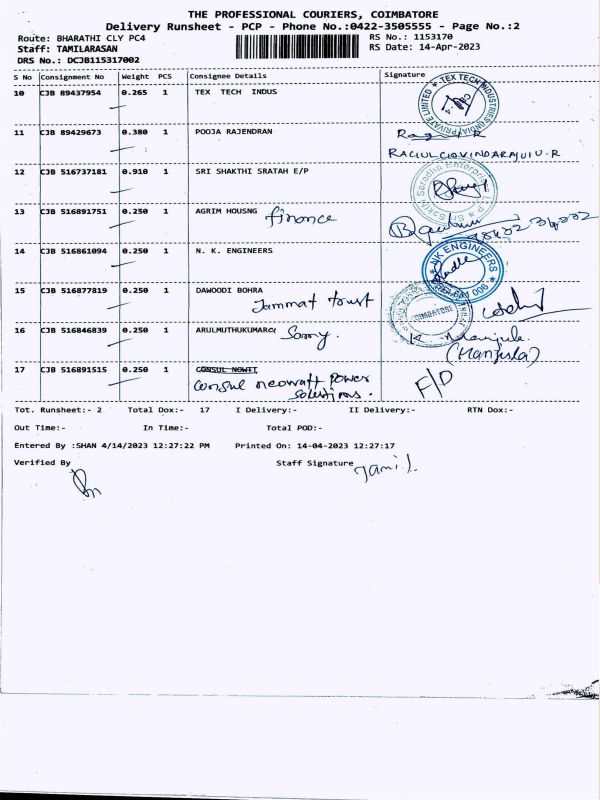 THE PROFESSIONAL COURIERS, COIMBATORE
Delivery Runsheet - PCP - Phone No.:0422-3505555 - Page No.:2
Route: BHARATHI CLY PC4 RS No.: 1153170
Staff: TAMILARASAN RS Date: 14-Apr-2023
DRS No.: DCJB115317002
S No Consignment No Weight PCS Consignee Details Signature
10 CJB 89437954 0.265 1 TEX TECH INDUS
TEX TECH INDUSTRIES INDIA PRIVATE LIMITED
11 CJB 89429673 0.380 1 POOJA RAJENDRAN
RAGULGOVINDARAJULU.R
12 CJB 516737181 0.910 1 SRI SHAKTHI SRATAH E/P
13 CJB 516891751 0.250 1 AGRIM HOUSNG finance
14 CJB 516861094 0.250 1 N. K. ENGINEERS
NK ENGINEERS
15 CJB 516877819 0.250 1 DAWOODI BOHRA
Jammat trust
COIMBATORE
16 CJB 516846839 0.250 1 ARULMUTHUKUMARQ
K. Manjula
(Manjula)
17 CJB 516891515 0.250 1 CONSUL NOWTT
Consul neowatt power
solutions. F/D
Tot. Runsheet:- 2 Total Dox:- 17 I Delivery:- II Delivery:- RTN Dox:-
Out Time:- In Time:- Total POD:-
Entered By :SHAN 4/14/2023 12:27:22 PM Printed On: 14-04-2023 12:27:17
Verified By Staff Signature